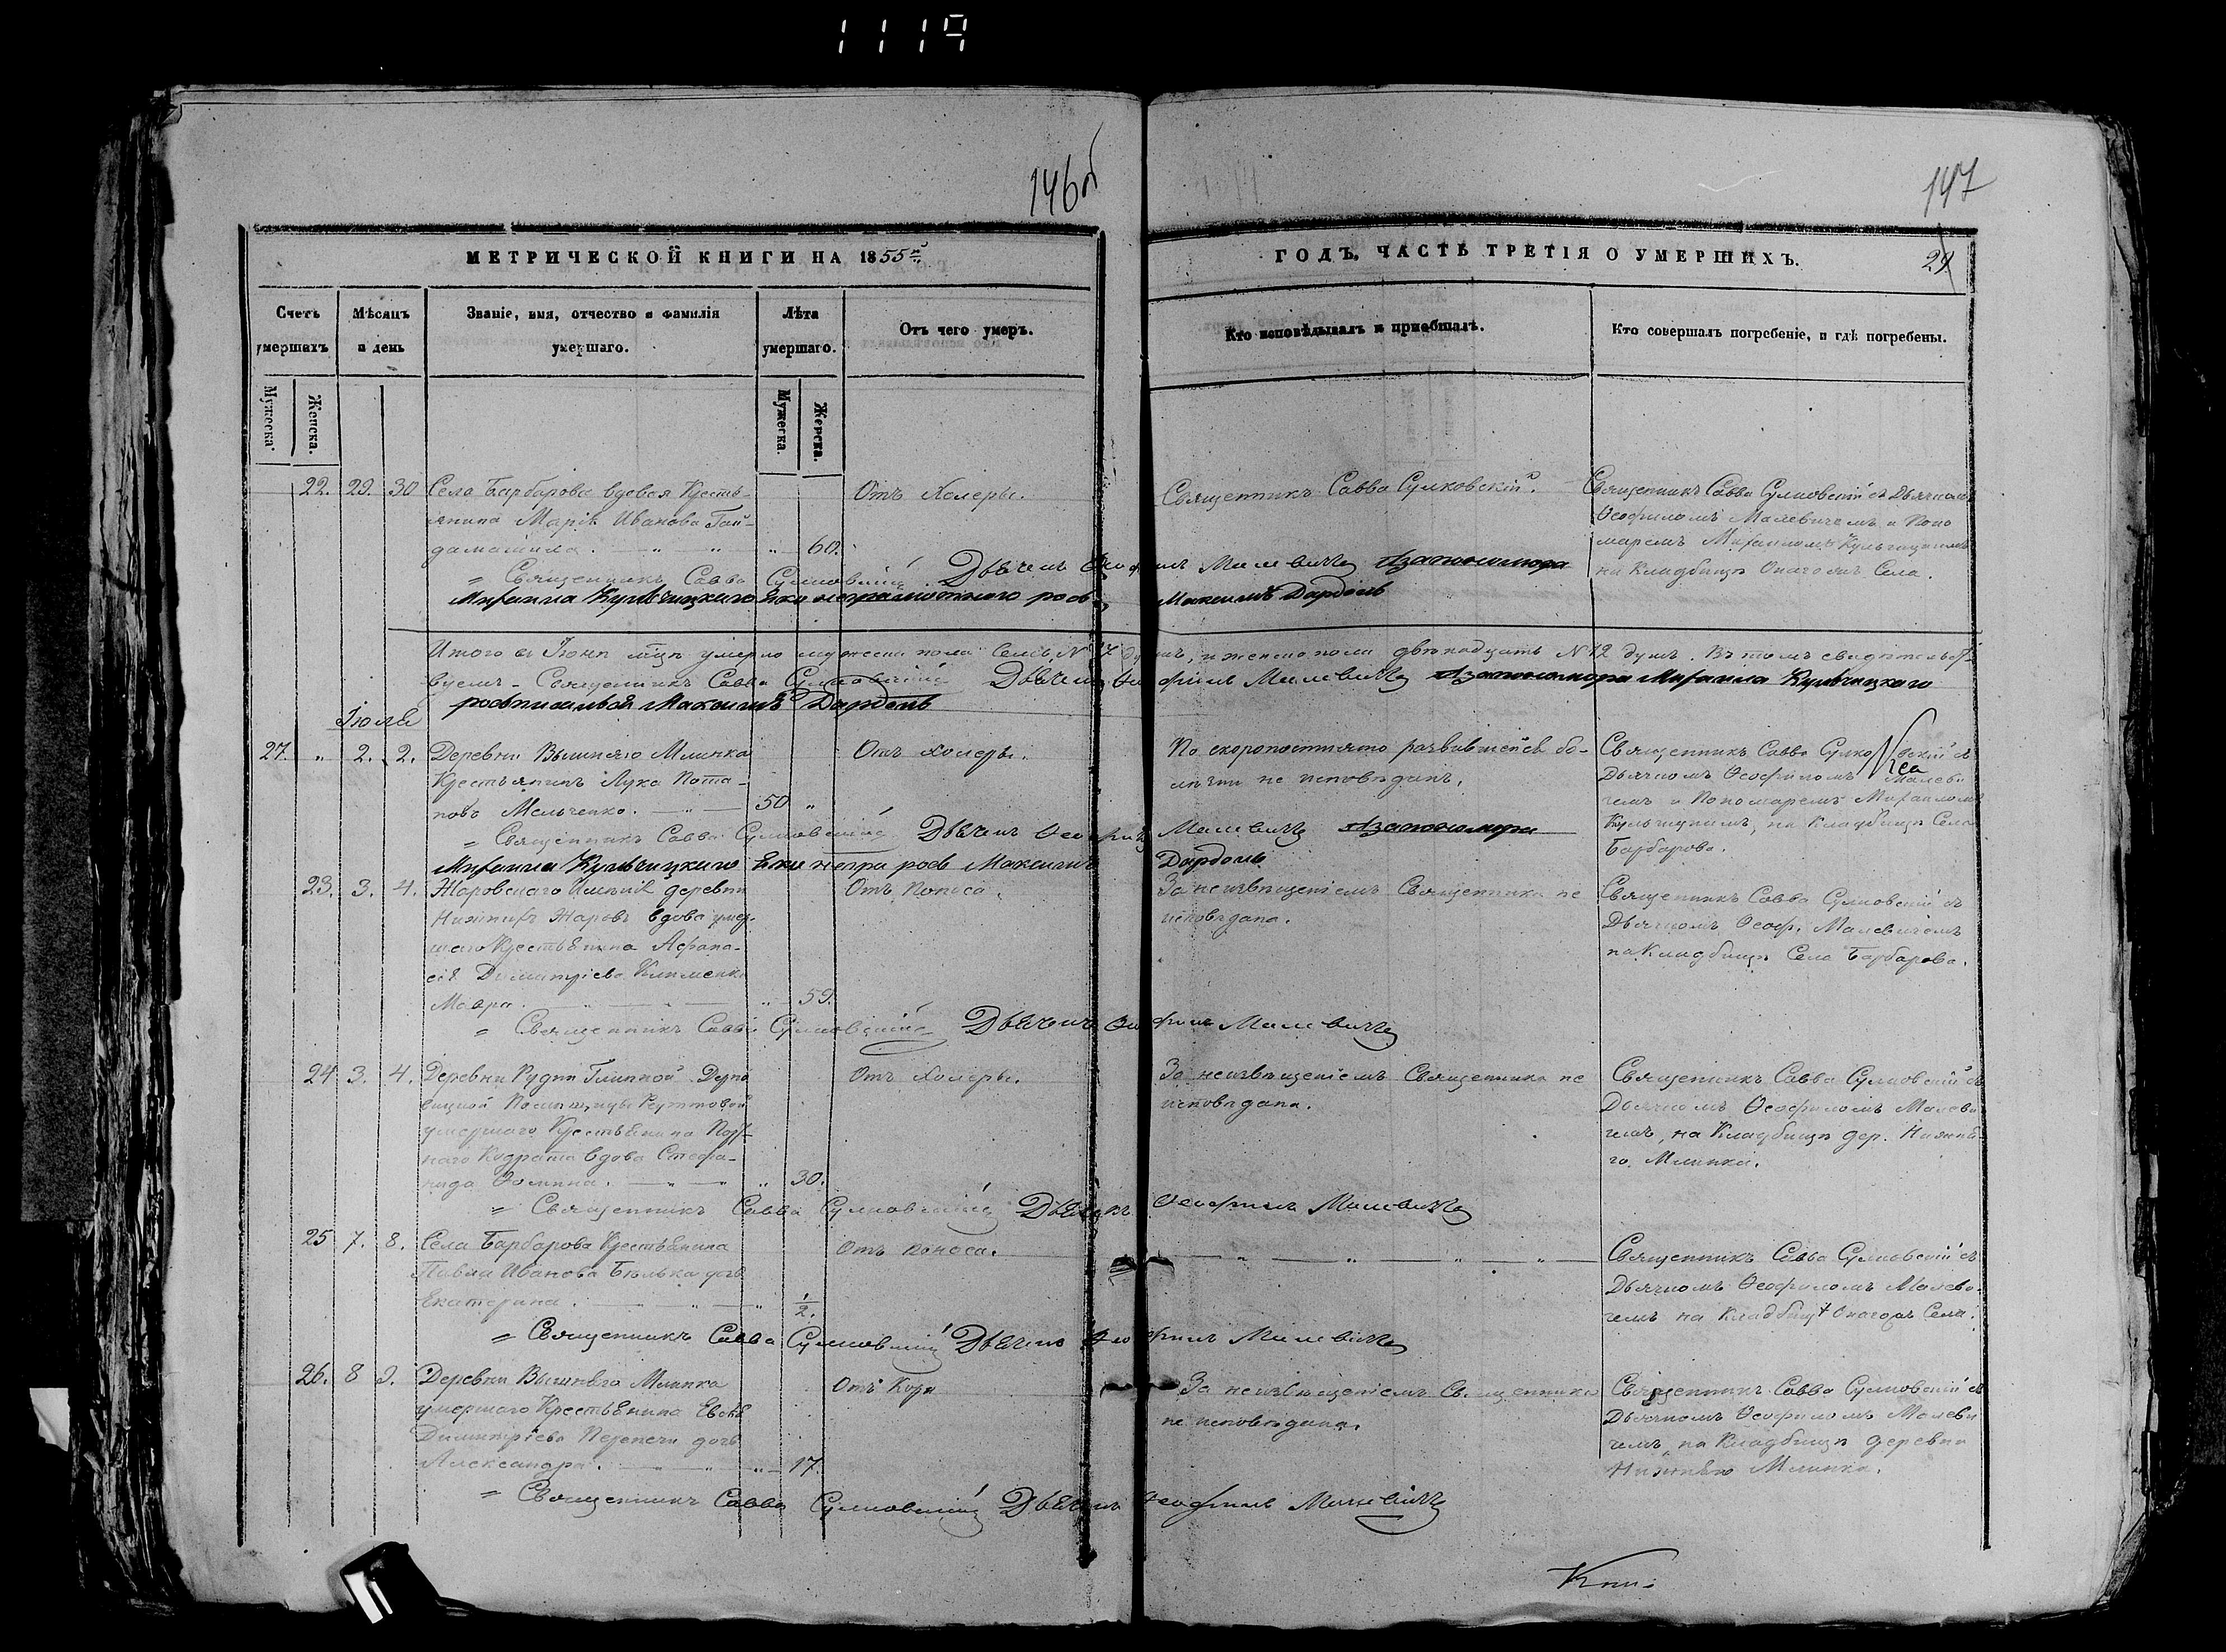 1119
146об
147
МЕТРИЧЕСКОЙ КНИГИ НА 1855й
ГОДЪ, ЧАСТЬ ТРЕТІЯ О УМЕРШИХЪ.
29
Счетъ умершихъ
Мѣсяцъ и день
Званіе, имя, отчество и фамилія умершаго.
Лѣта умершаго.
Отъ чего умеръ.
Кто исповѣдывалъ и пріобщалъ.
Кто совершалъ погребеніе, и гдѣ погребены.
Мужеска.
Женска.
Мужеска.
Женска.
22. 29. 30
Села Барбарова вдовая Кресть-
янина Марія Иванова Гай-
60.
Отъ Холеры.
Священникъ Савва Сулковскій.
Священникъ Савва Сулковскій съ Дьячкомъ
Ѳеофиломъ Малевичемъ и Поно
маремъ Михаиломъ Кульчицкимъ
на Кладбищѣ Онаго жъ Села.
" Священникъ Савва Сулковскій Дьячекъ Ѳеофилъ Малевичъ А за пономаря
Михаила Кульчицкаго Яко неграмотнаго росп. Максимъ Дардонъ
Итого въ Іюнѣ мцѣ умерло мужеска пола Семь N 7 душъ, и женска пола двѣнадцать N 12 душъ. Въ томъ свидѣтельст-
вуемъ - Священникъ Савва Сулковскій Дьячекъ Ѳеофилъ Малевичъ А за пономаря Михаила Кульчицкаго
росписался Максимъ Дардонъ
Іюля
27. " 2. 2.
Деревни Вышняго Млинка
Крестьянинъ Лука Пота-
повъ Мельченко.
50 "
Отъ холеры.
По скоропостижно развившейся бо-
лѣзни не исповѣданъ.
Священникъ Савва Сулковскій съ
Дьячкомъ Ѳеофиломъ Малеви
чемъ и Пономаремъ Михаиломъ
Кульчицкимъ, на Кладбищѣ Села
Барбарова.
" Священникъ Савва Сулковскій Дьячекъ Ѳеофилъ Малевичъ А за пономаря
Михаила Кульчицкаго Яко негра росп Максимъ Дардонъ
23. 3. 4.
Жаровскаго Имѣнія деревни
Нижнихъ Жаровъ вдова умер-
шаго Крестьянина Афана-
сія Димитріева Клименка
Мавра.
59.
Отъ Поноса.
За неизвѣщеніемъ Священника не
исповѣдана.
Священникъ Савва Сулковскій съ
Дьячкомъ Ѳеоф. Малевичемъ
на Кладбищѣ Села Барбарова.
" Священникъ Савва Сулковскій Дьячекъ Ѳеофилъ Малевичъ
24 3. 4.
Деревни Рудни
умершаго Крестьянина
вдова Стефа-
нида Ѳомина.
30.
Отъ Холеры.
За неизвѣщеніемъ Священника не
исповѣдана.
Священникъ Савва Сулковскій съ
Дьячкомъ Ѳеофиломъ Малеви
чемъ, на Кладбищѣ дер. Нижня-
го Млинка.
" Священникъ Савва Сулковскій Дьячекъ Ѳеофилъ Малевичъ
25 7. 8.
Села Барбарова Крестьянина
Павла Иванова Бѣлька дочь
Екатерина.
1/2.
Отъ поноса.
Священникъ Савва Сулковскій съ
Дьячкомъ Ѳеофиломъ Малеви-
чемъ на Кладбищѣ Онаго жъ Села.
" Священникъ Савва Сулковскій Дьячекъ Ѳеофилъ Малевичъ
26. 8 9.
Деревни Вышняго Млинка
умершаго Крестьянина Евсѣя
Димитріева Перепечи дочь
Александра.
17.
Отъ Кори
За неизвѣщеніемъ Священника
не исповѣдана.
Священникъ Савва Сулковскій съ
Дьячкомъ Ѳеофиломъ Малеви
чемъ, на Кладбищѣ деревни
Нижняго Млинка.
" Священникъ Савва Сулковскій Дьячекъ Ѳеофилъ Малевичъ